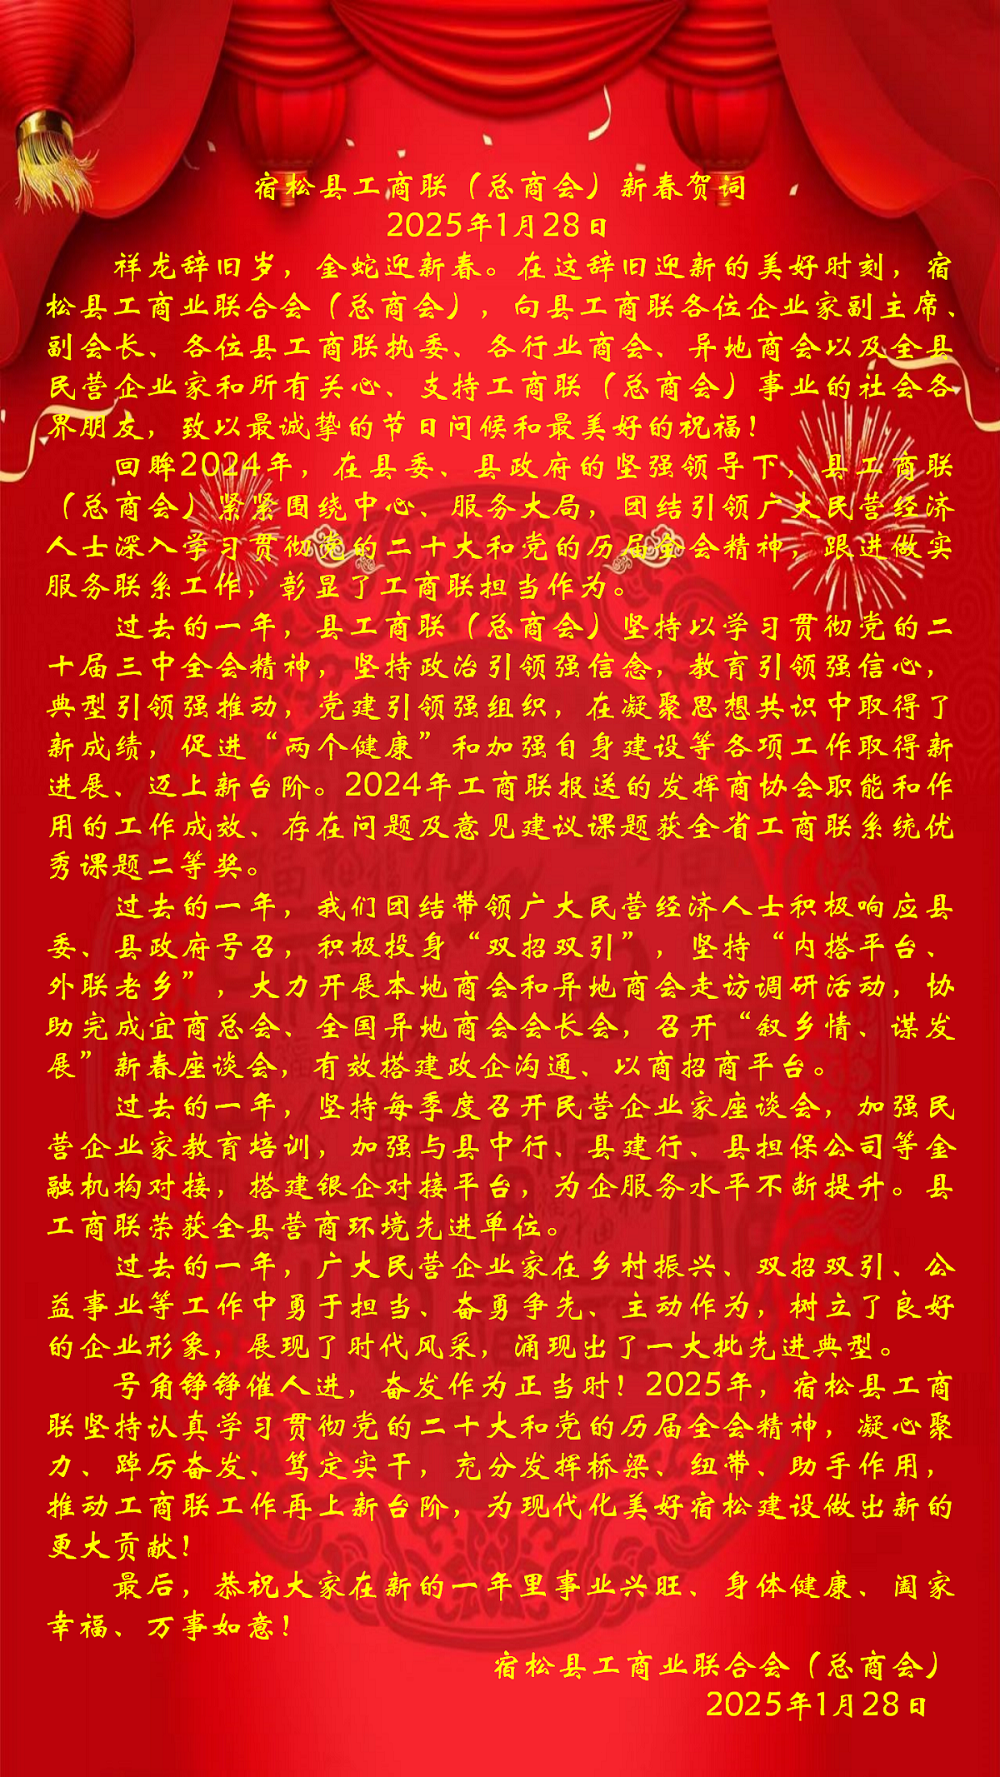 宿松县工商联（总商会）新春贺词
2025年1月28日
祥龙辞旧岁，金蛇迎新春。在这辞旧迎新的美好时刻，宿
松县工商业联合会（总商会），向县工商联各位企业家副主席、
副会长、各位县工商联执委、各行业商会、异地商会以及全县
民营企业家和所有关心、支持工商联（总商会）事业的社会各
界朋友，致以最诚挚的节日问候和最美好的祝福！
回眸2024年，在县委、县政府的坚强领导下，县工商联
（总商会）紧紧围绕中心、服务大局，团结引领广大民营经济
人士深入学习贯彻党的二十大和党的历届全会精神，跟进做实
服务联系工作，彰显了工商联担当作为。
过去的一年，县工商联（总商会）坚持以学习贯彻党的二
十届三中全会精神，坚持政治引领强信念，教育引领强信心，
典型引领强推动，党建引领强组织，在凝聚思想共识中取得了
新成绩，促进“两个健康”和加强自身建设等各项工作取得新
进展、迈上新台阶。2024年工商联报送的发挥商协会职能和作
用的工作成效、存在问题及意见建议课题获全省工商联系统优
秀课题二等奖。
过去的一年，我们团结带领广大民营经济人士积极响应县
委、县政府号召，积极投身“双招双引”，坚持“内搭平台、
外联老乡”，大力开展本地商会和异地商会走访调研活动，协
助完成宜商总会、全国异地商会会长会，召开“叙乡情、谋发
展”新春座谈会，有效搭建政企沟通、以商招商平台。
过去的一年，坚持每季度召开民营企业家座谈会，加强民
营企业家教育培训，加强与县中行、县建行、县担保公司等金
融机构对接，搭建银企对接平台，为企服务水平不断提升。县
工商联荣获全县营商环境先进单位。
过去的一年，广大民营企业家在乡村振兴、双招双引、公
益事业等工作中勇于担当、奋勇争先、主动作为，树立了良好
的企业形象，展现了时代风采，涌现出了一大批先进典型。
号角铮铮催人进，奋发作为正当时！2025年，宿松县工商
联坚持认真学习贯彻党的二十大和党的历届全会精神，凝心聚
力、踔厉奋发、笃定实干，充分发挥桥梁、纽带、助手作用，
推动工商联工作再上新台阶，为现代化美好宿松建设做出新的
更大贡献！
最后，恭祝大家在新的一年里事业兴旺、身体健康、阖家
幸福、万事如意！
宿松县工商业联合会（总商会）
2025年1月28日